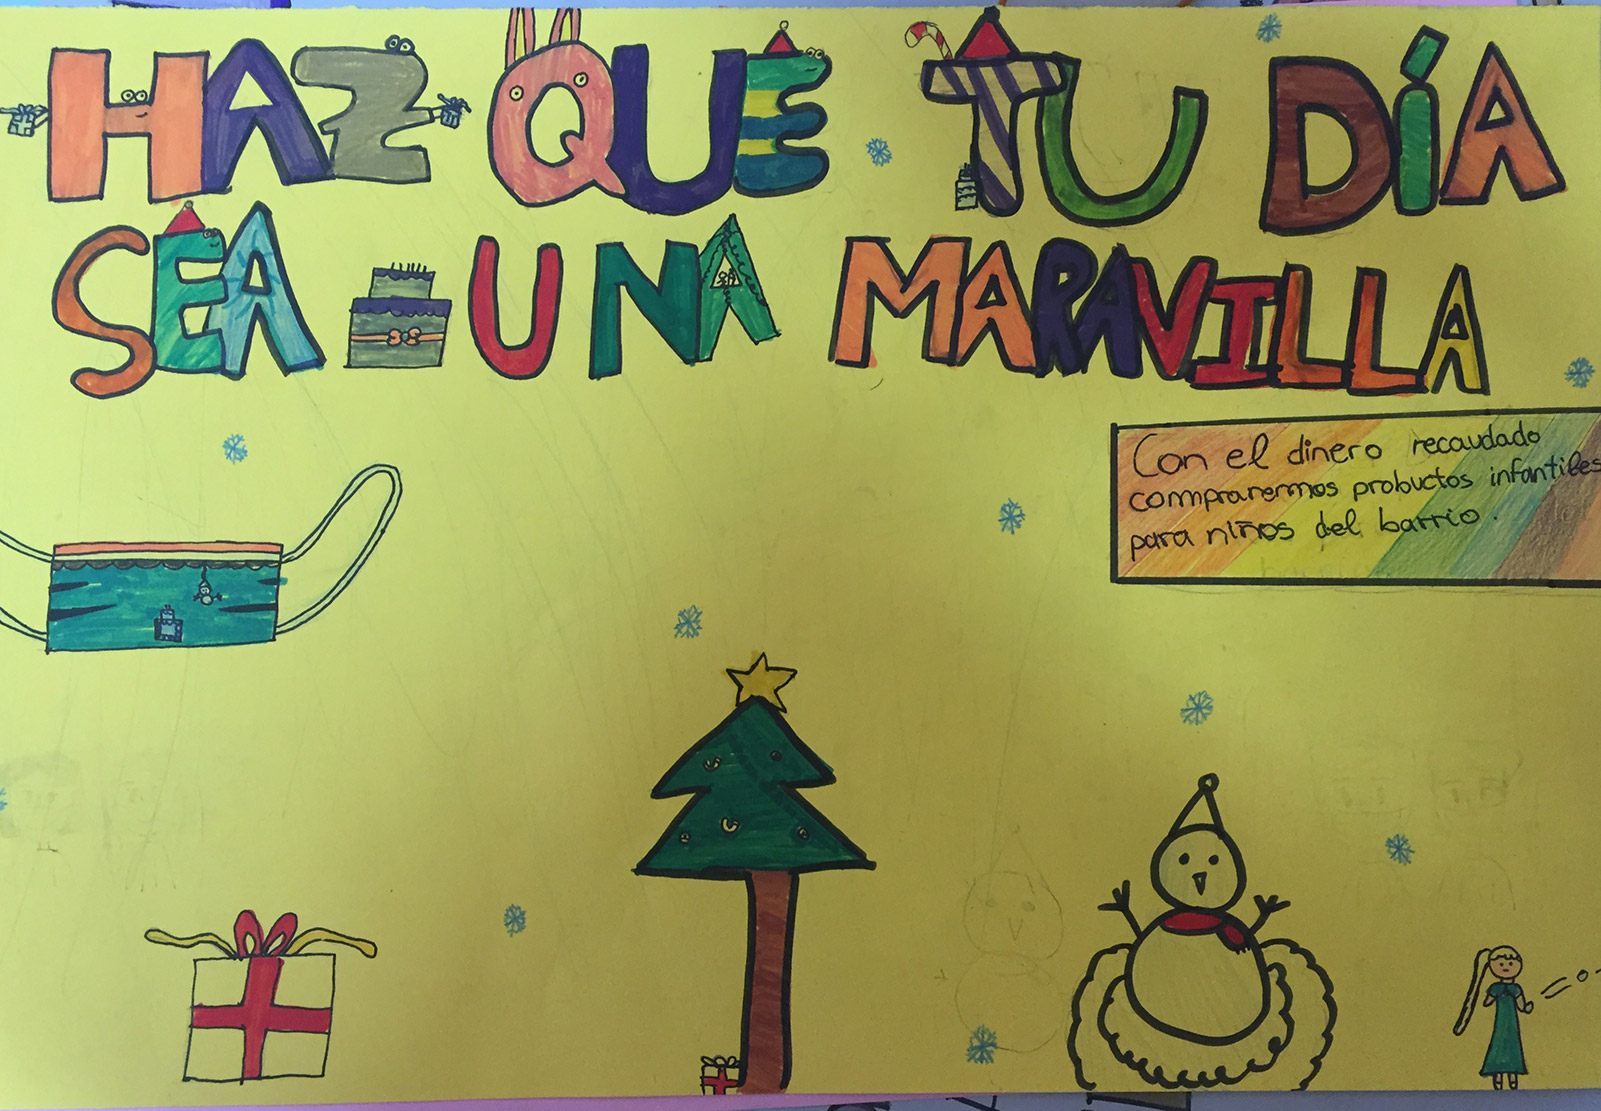 HAZ QUE TU DÍA
SEA UNA MARAVILLA
Con el dinero recaudado
compraremos probuctos infantiles
para niños del barrio.